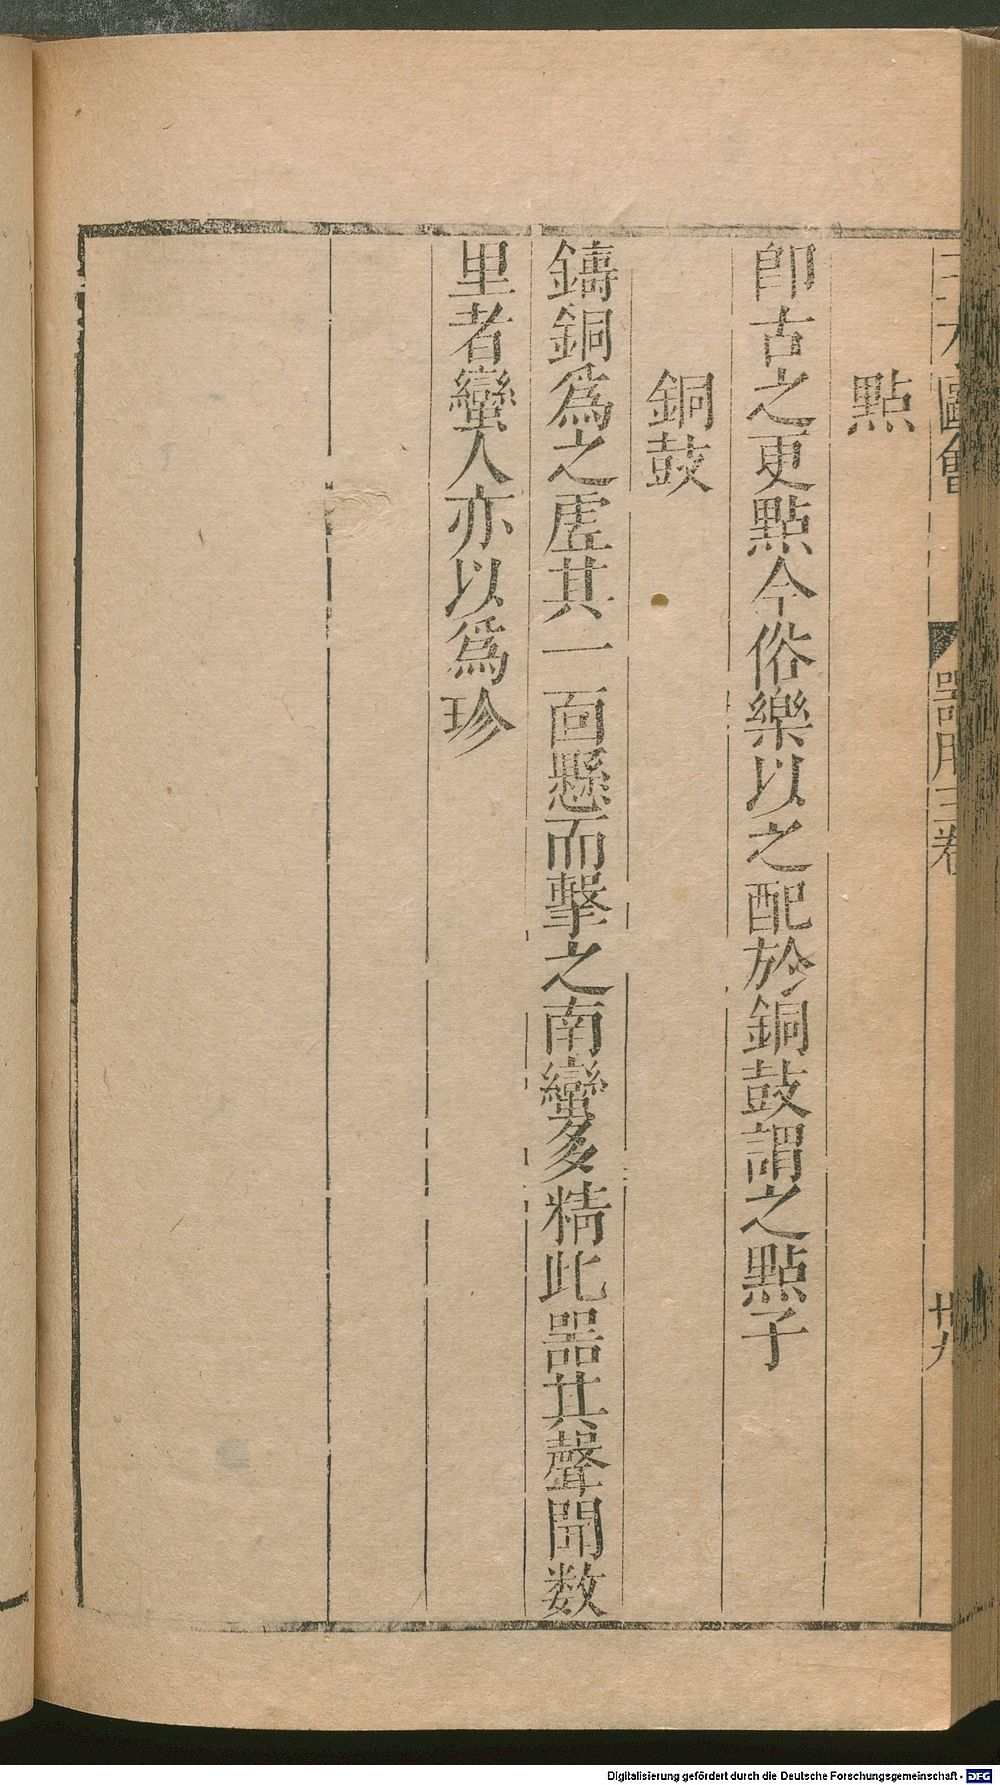 三才圖會 器用三卷 廿九
點
卽古之更點今俗樂以之配於銅鼓謂之點子
銅鼓
鑄銅爲之虗其一面懸而擊之南蠻多精此器其聲聞数
里者蠻人亦以爲珍
Digitalisierung gefördert durch die Deutsche Forschungsgemeinschaft - DFG